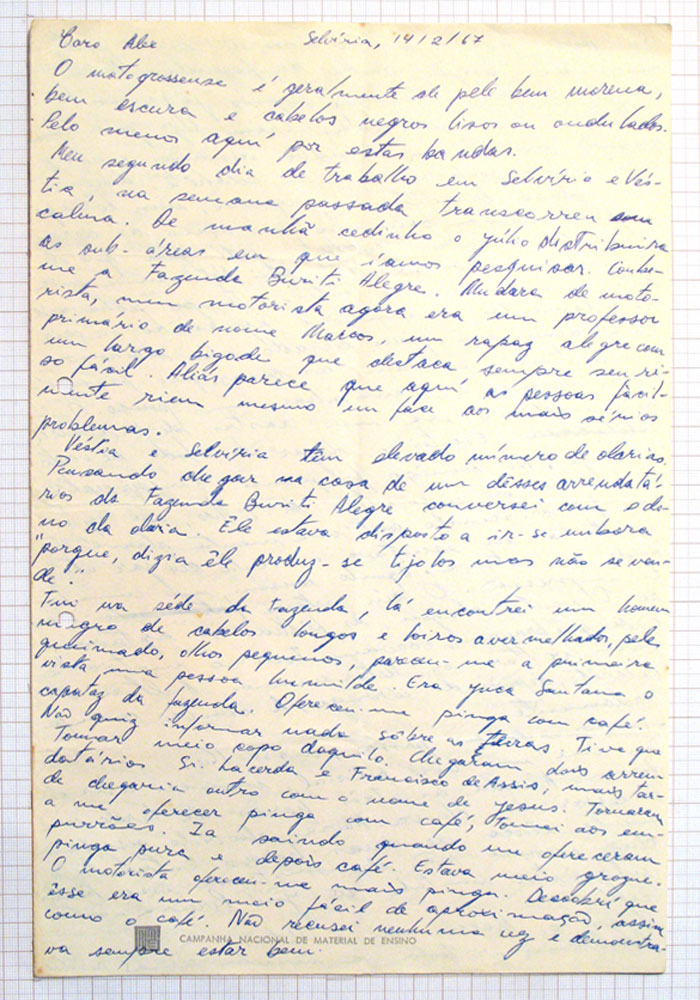 Caro Abe Selvíria, 14/2/67
O matogrossense é geralmente de pele bem morena,
bem escura e cabelos negros lisos ou ondulados.
Pelo menos aqui por estas bandas.
Meu segundo dia de trabalho em Selvíria e Vés-
tia, na semana passada transcorreu com
calma. De manhã cedinho o Yúho distribuira
as sub-áreas em que íamos pesquisar. Coube-
me a Fazenda Buriti Alegre. Mudara de moto-
rista, meu motorista agora era um professor
primário de nome Marcos, um rapaz alegre com
um largo bigode que destaca sempre seu ri-
so fácil. Aliás parece que aqui as pessoas facil-
mente riem mesmo em face aos mais sérios
problemas.
Véstia e Selvíria têm elevado número de olarias.
Pensando chegar na casa de um dêsses arrendatá-
rios da Fazenda Buriti Alegre conversei com o do-
no da olaria. Êle estava disposto a ir-se embora
"porque, dizia êle produz-se tijolos mas não se ven-
de."
Fui na séde da Fazenda, lá encontrei um homem
magro de cabelos longos e loiros avermelhados, pele
queimado, olhos pequenos, pareceu-me a primeira
vista uma pessoa humilde. Era Yuca Santana o
capataz da fazenda. Ofereceu-me pinga com café.
Não quiz informar nada sôbre as terras. Tive que
Tomar meio copo daquilo. Chegaram dois arren
datários Si. Lacerda e Francisco de Assis, mais tar-
de chegaria outro com o nome de Jesus. Tornaram
a me oferecer pinga com café, tomei aos em-
purrões. Ia saindo quando me ofereceram
pinga pura e depois café. Estava meio grogue.
O motorista ofereceu-me mais pinga. Descobri que
êsse era um meio fácil de aproximação, assim
como o café. Não recusei nenhuma vez e demonstra-
va sempre estar bem.
CAMPANHA NACIONAL DE MATERIAL DE ENSINO